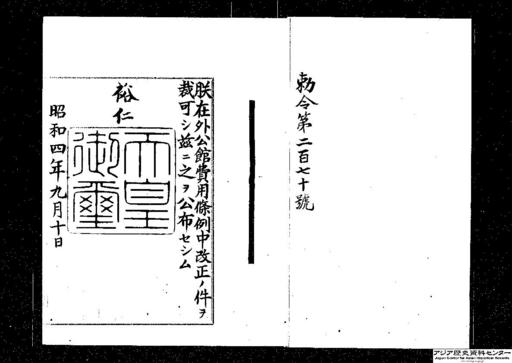 勅令第二百七十號
朕在外公館費用條例中改正ノ件ヲ
裁可シ茲ニ之ヲ公布セシム
裕仁
天皇御璽
昭和四年九月十日
アジア歴史資料センター
Japan Center for Asian Historical Records